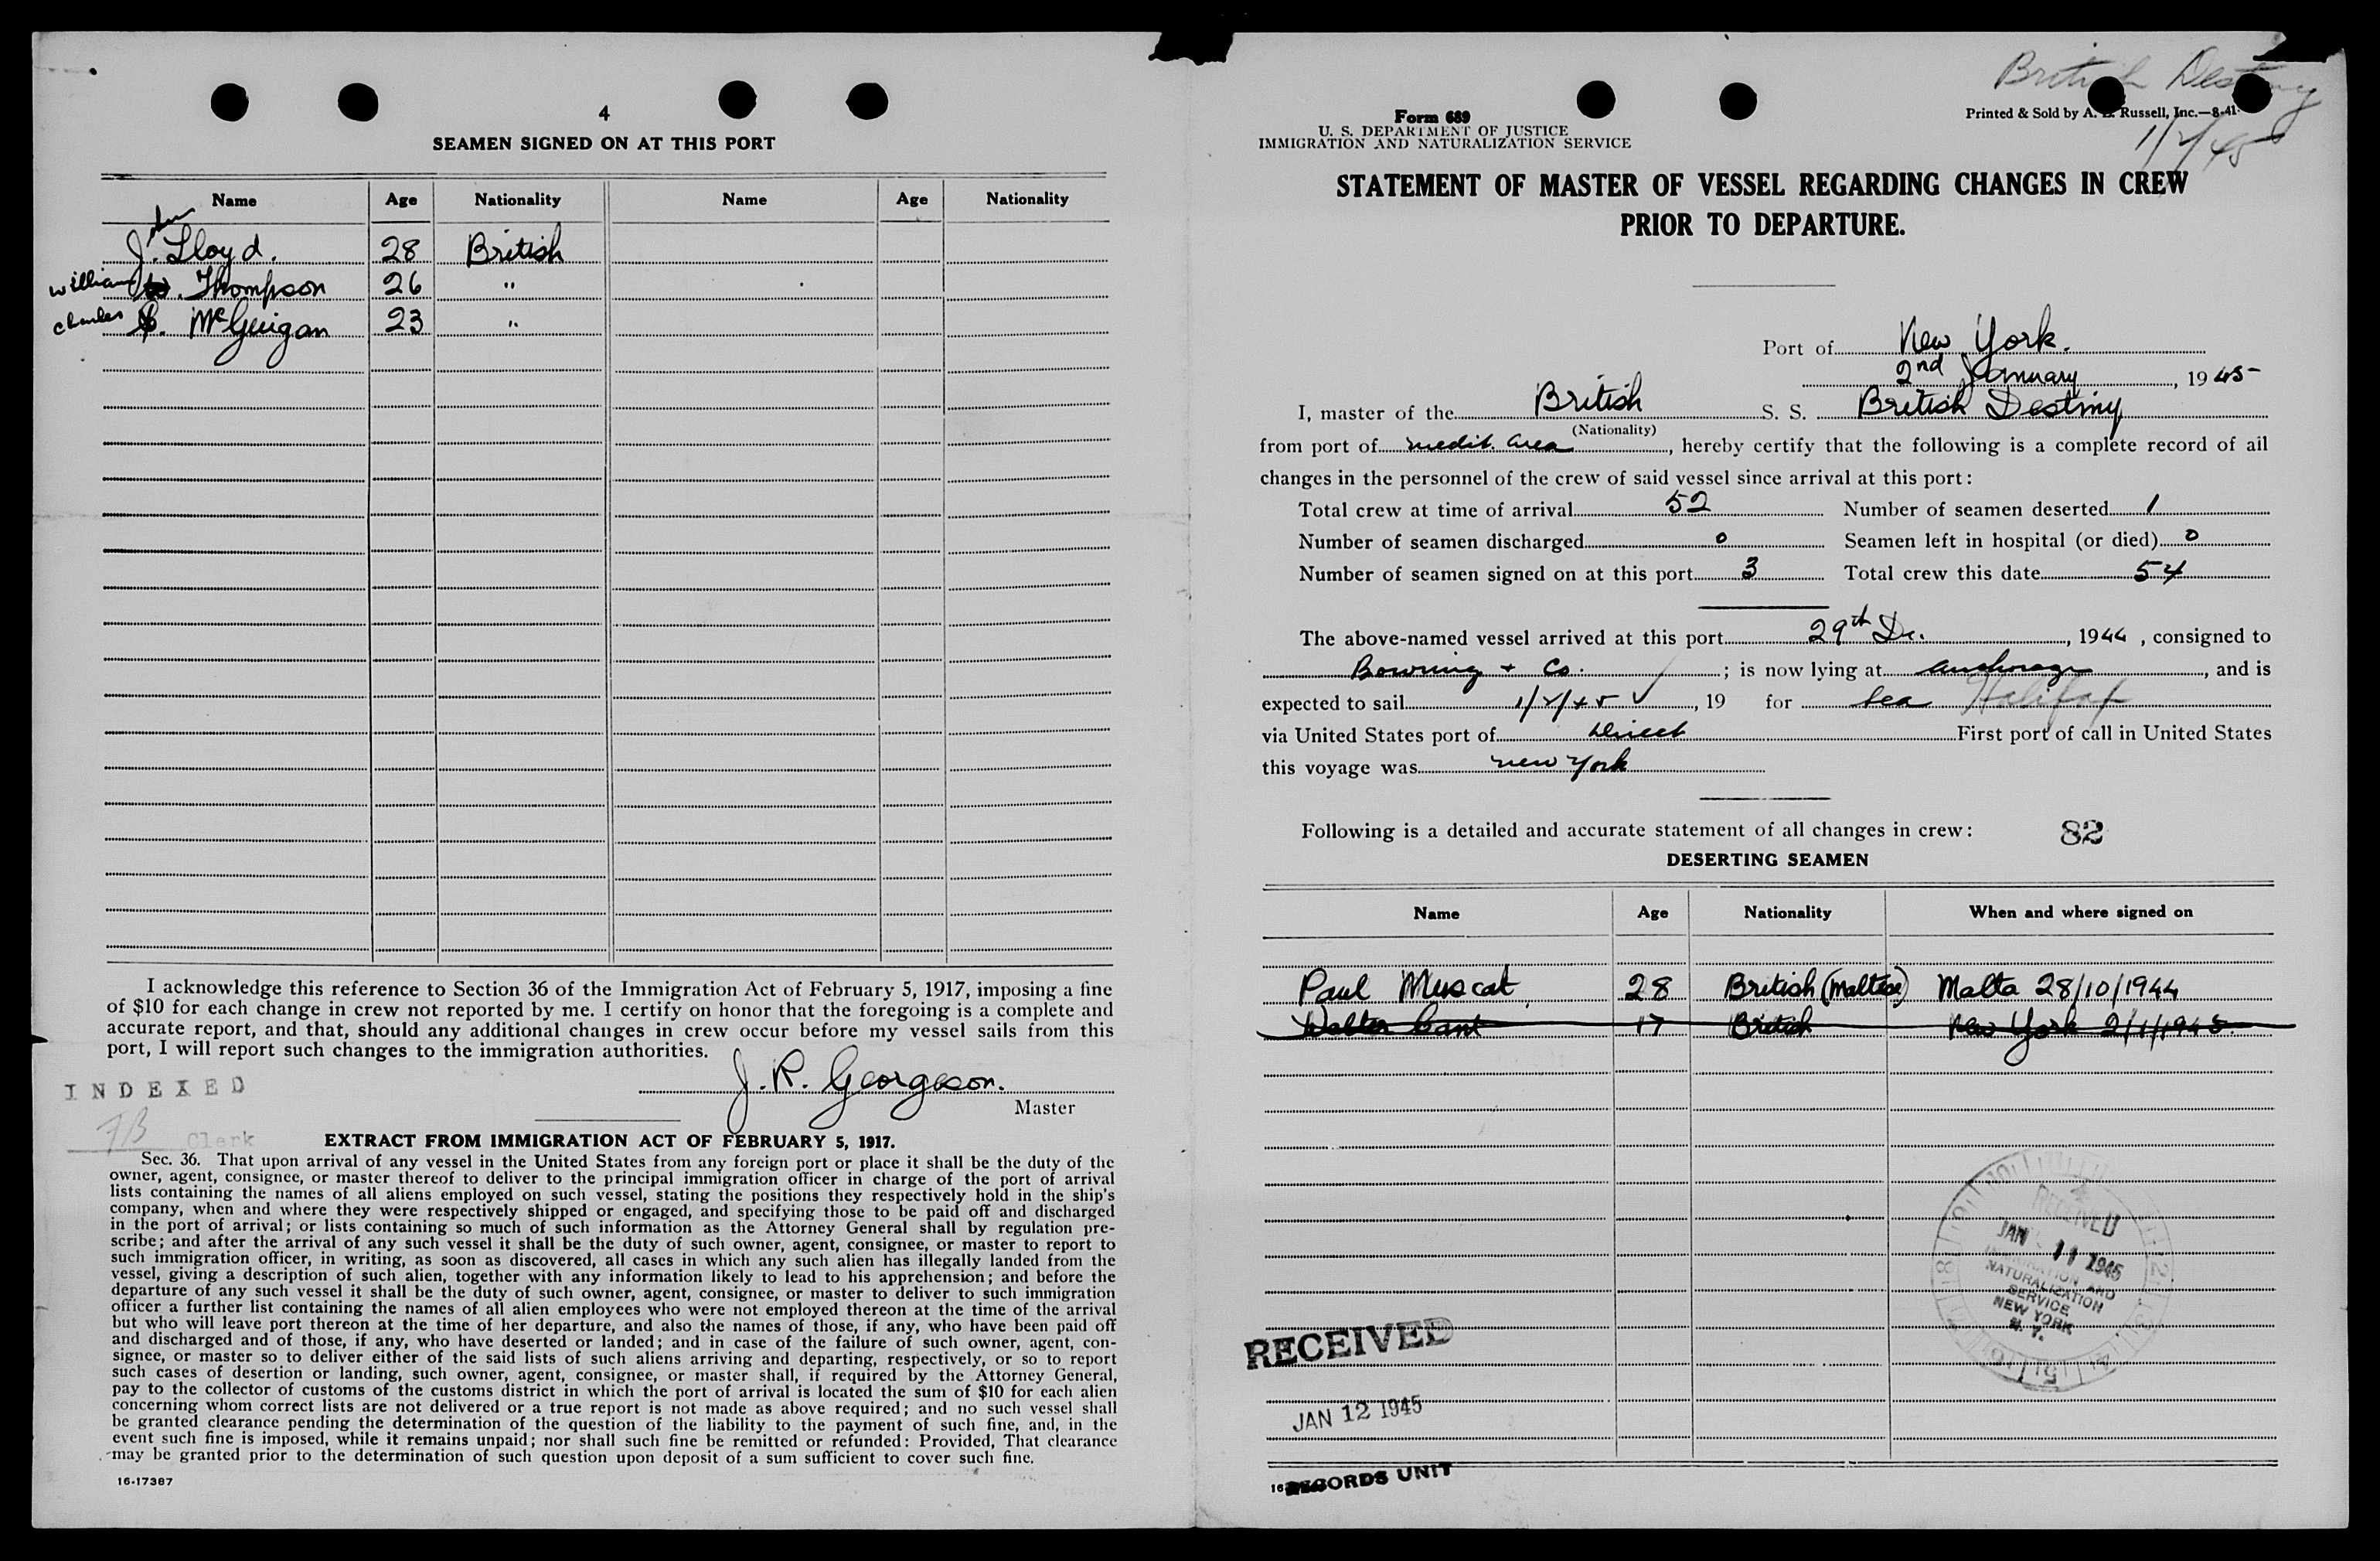 4
SEAMEN SIGNED ON AT THIS PORT
Name Age Nationality Name Age Nationality
John
J. Lloyd. 28 British
William W. Thompson 26 "
Charles C. McGuigan 23 "
I acknowledge this reference to Section 36 of the Immigration Act of February 5, 1917, imposing a fine
of $10 for each change in crew not reported by me. I certify on honor that the foregoing is a complete and
accurate report, and that, should any additional changes in crew occur before my vessel sails from this
port, I will report such changes to the immigration authorities.
J. R. Georgeson.
Master
INDEXED
Clerk
EXTRACT FROM IMMIGRATION ACT OF FEBRUARY 5, 1917.
Sec. 36. That upon arrival of any vessel in the United States from any foreign port or place it shall be the duty of the
owner, agent, consignee, or master thereof to deliver to the principal immigration officer in charge of the port of arrival
lists containing the names of all aliens employed on such vessel, stating the positions they respectively hold in the ship's
company, when and where they were respectively shipped or engaged, and specifying those to be paid off and discharged
in the port of arrival; or lists containing so much of such information as the Attorney General shall by regulation pre-
scribe; and after the arrival of any such vessel it shall be the duty of such owner, agent, consignee, or master to report to
such immigration officer, in writing, as soon as discovered, all cases in which any such alien has illegally landed from the
vessel, giving a description of such alien, together with any information likely to lead to his apprehension; and before the
departure of any such vessel it shall be the duty of such owner, agent, consignee, or master to deliver to such immigration
officer a further list containing the names of all alien employees who were not employed thereon at the time of the arrival
but who will leave port thereon at the time of her departure, and also the names of those, if any, who have been paid off
and discharged and of those, if any, who have deserted or landed; and in case of the failure of such owner, agent, con-
signee, or master so to deliver either of the said lists of such aliens arriving and departing, respectively, or so to report
such cases of desertion or landing, such owner, agent, consignee, or master shall, if required by the Attorney General,
pay to the collector of customs of the customs district in which the port of arrival is located the sum of $10 for each alien
concerning whom correct lists are not delivered or a true report is not made as above required; and no such vessel shall
be granted clearance pending the determination of the question of the liability to the payment of such fine, and, in the
event such fine is imposed, while it remains unpaid; nor shall such fine be remitted or refunded: Provided, That clearance
may be granted prior to the determination of such question upon deposit of a sum sufficient to cover such fine.
16-17387
British Destiny
Form 689
U. S. DEPARTMENT OF JUSTICE
IMMIGRATION AND NATURALIZATION SERVICE
Printed & Sold by A. Russell, Inc.—8-41
STATEMENT OF MASTER OF VESSEL REGARDING CHANGES IN CREW
PRIOR TO DEPARTURE.
Port of New York.
2nd January, 1945
I, master of the British S. S. British Destiny
(Nationality)
from port of medit. area, hereby certify that the following is a complete record of all
changes in the personnel of the crew of said vessel since arrival at this port:
Total crew at time of arrival 52 Number of seamen deserted 1
Number of seamen discharged 0 Seamen left in hospital (or died) 0
Number of seamen signed on at this port 3 Total crew this date 54
The above-named vessel arrived at this port 29th De., 1944, consigned to
Bowring + Co.; is now lying at anchorage, and is
expected to sail 1/2/45 ✓, 19 for Sea Halifax
via United States port of Direct First port of call in United States
this voyage was new york
Following is a detailed and accurate statement of all changes in crew: 82
DESERTING SEAMEN
Name Age Nationality When and where signed on
Paul Muscat 28 British (Maltese) Malta 28/10/1944
Walter Cant 17 British New York 2/1/1945.
RECEIVED
JAN 11 1945
IMMIGRATION AND
NATURALIZATION
SERVICE
NEW YORK
N. Y.
RECEIVED
JAN 12 1945
RECORDS UNIT